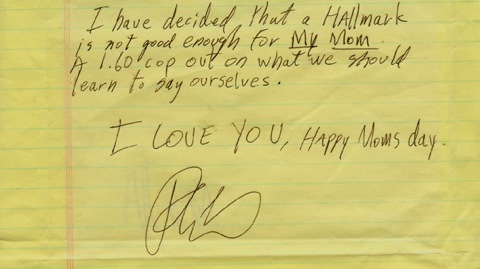 I have decided that a HAllmark
is not good enough for My Mom.
A 1.60 cop out on what we should
learn to say ourselves.
I LOVE YOU, Happy Moms day.